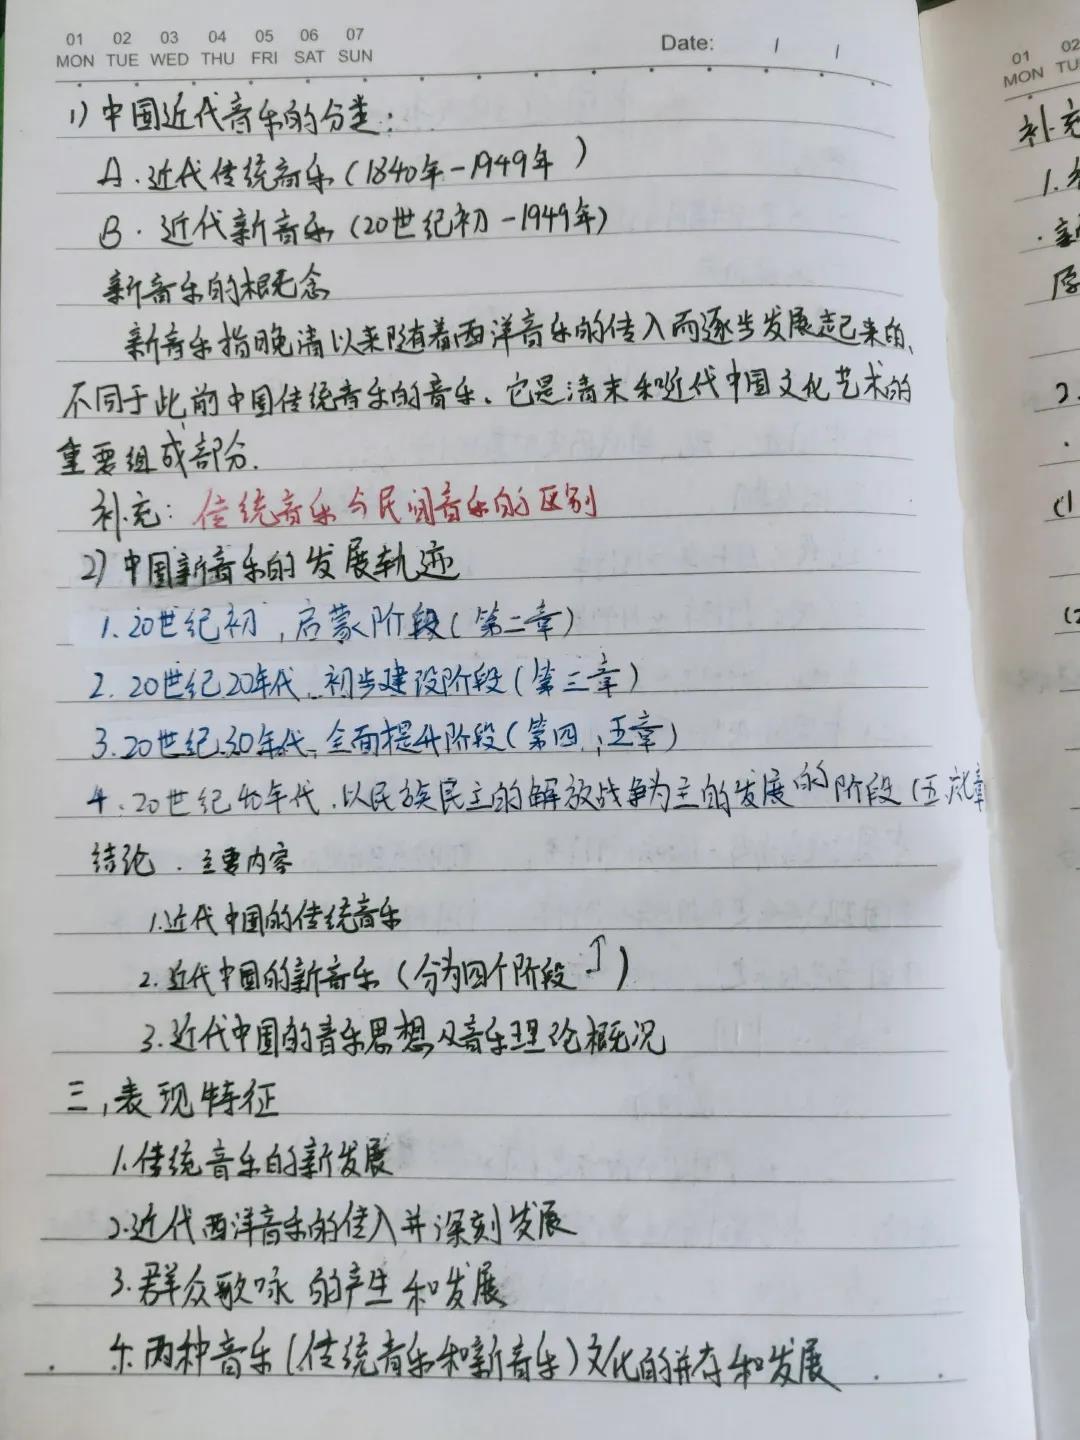 01 02 03 04 05 06 07
MON TUE WED THU FRI SAT SUN
Date: / /
1) 中国近代音乐的分类:
A.近代传统音乐(1840年-1949年)
B.近代新音乐(20世纪初-1949年)
新音乐的概念
新音乐指晚清以来随着西洋音乐的传入而逐步发展起来的、
不同于此前中国传统音乐的音乐。它是清末和近代中国文化艺术的
重要组成部分.
补充:传统音乐与民间音乐的区别
2)中国新音乐的发展轨迹
1.20世纪初,启蒙阶段(第二章)
2.20世纪20年代,初步建设阶段(第三章)
3.20世纪30年代,全面提升阶段(第四、五章)
4.20世纪40年代,以民族民主的解放战争为主的发展的阶段(五六章
结论.主要内容
1.近代中国的传统音乐
2.近代中国的新音乐(分为四个阶段↑)
3.近代中国的音乐思想及音乐理论概况
三,表现特征
1.传统音乐的新发展
2.近代西洋音乐的传入并深刻发展
3.群众歌咏的产生和发展
4.两种音乐(传统音乐和新音乐)文化的并存和发展
01 02
MON TU
补充
1.
2.
(1
(2